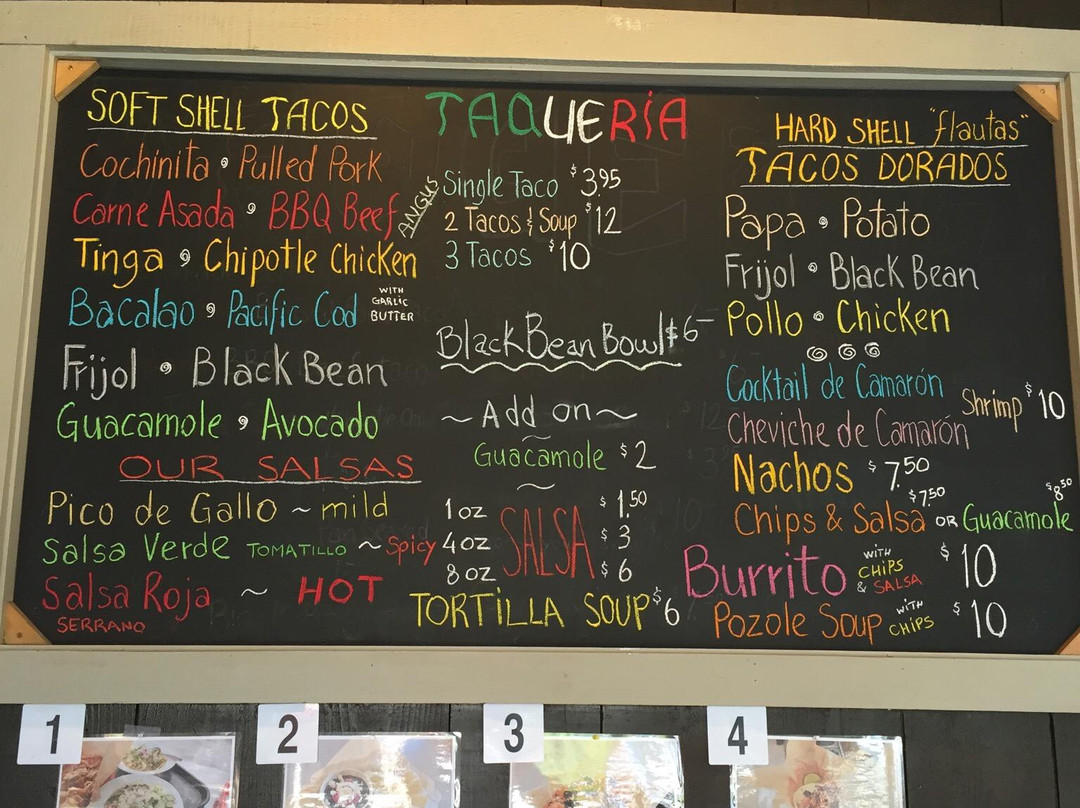 SOFT SHELL TACOS
Cochinita Pulled Pork
Carne Asada BBQ Beef ANGUS
Tinga Chipotle Chicken
Bacalao Pacific Cod WITH GARLIC BUTTER
Frijol Black Bean
Guacamole Avocado
OUR SALSAS
Pico de Gallo ~ mild
Salsa Verde TOMATILLO ~ Spicy
Salsa Roja ~ HOT
SERRANO
TAQUERÍA
Single Taco $3.95
2 Tacos & Soup $12
3 Tacos $10
Black Bean Bowl $6-
~ Add on ~
Guacamole $2
~
1oz $1.50
4oz SALSA $3
8oz $6
TORTILLA SOUP $6
HARD SHELL "flautas"
TACOS DORADOS
Papa Potato
Frijol Black Bean
Pollo Chicken
Cocktail de Camarón
Cheviche de Camarón Shrimp $10
Nachos $7.50
Chips & Salsa $7.50 OR Guacamole $8.50
Burrito WITH CHIPS & SALSA $10
Pozole Soup WITH CHIPS $10
1
2
3
4